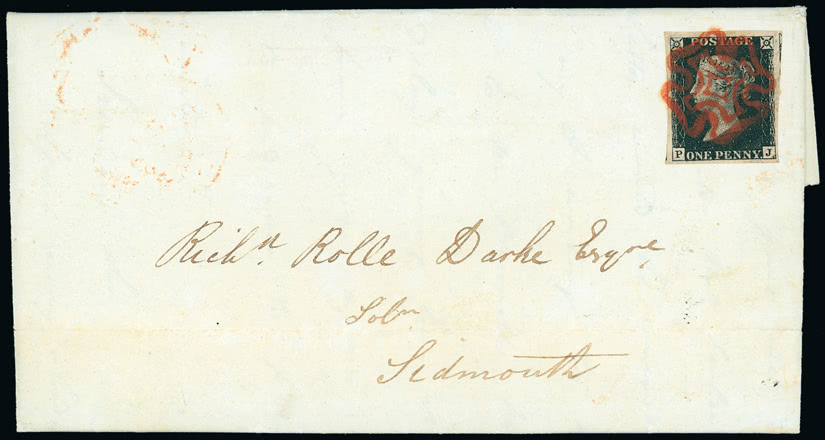 POSTAGE
P ONE PENNY J
Richd. Rolle Darke Esqre
Solr
Sidmouth